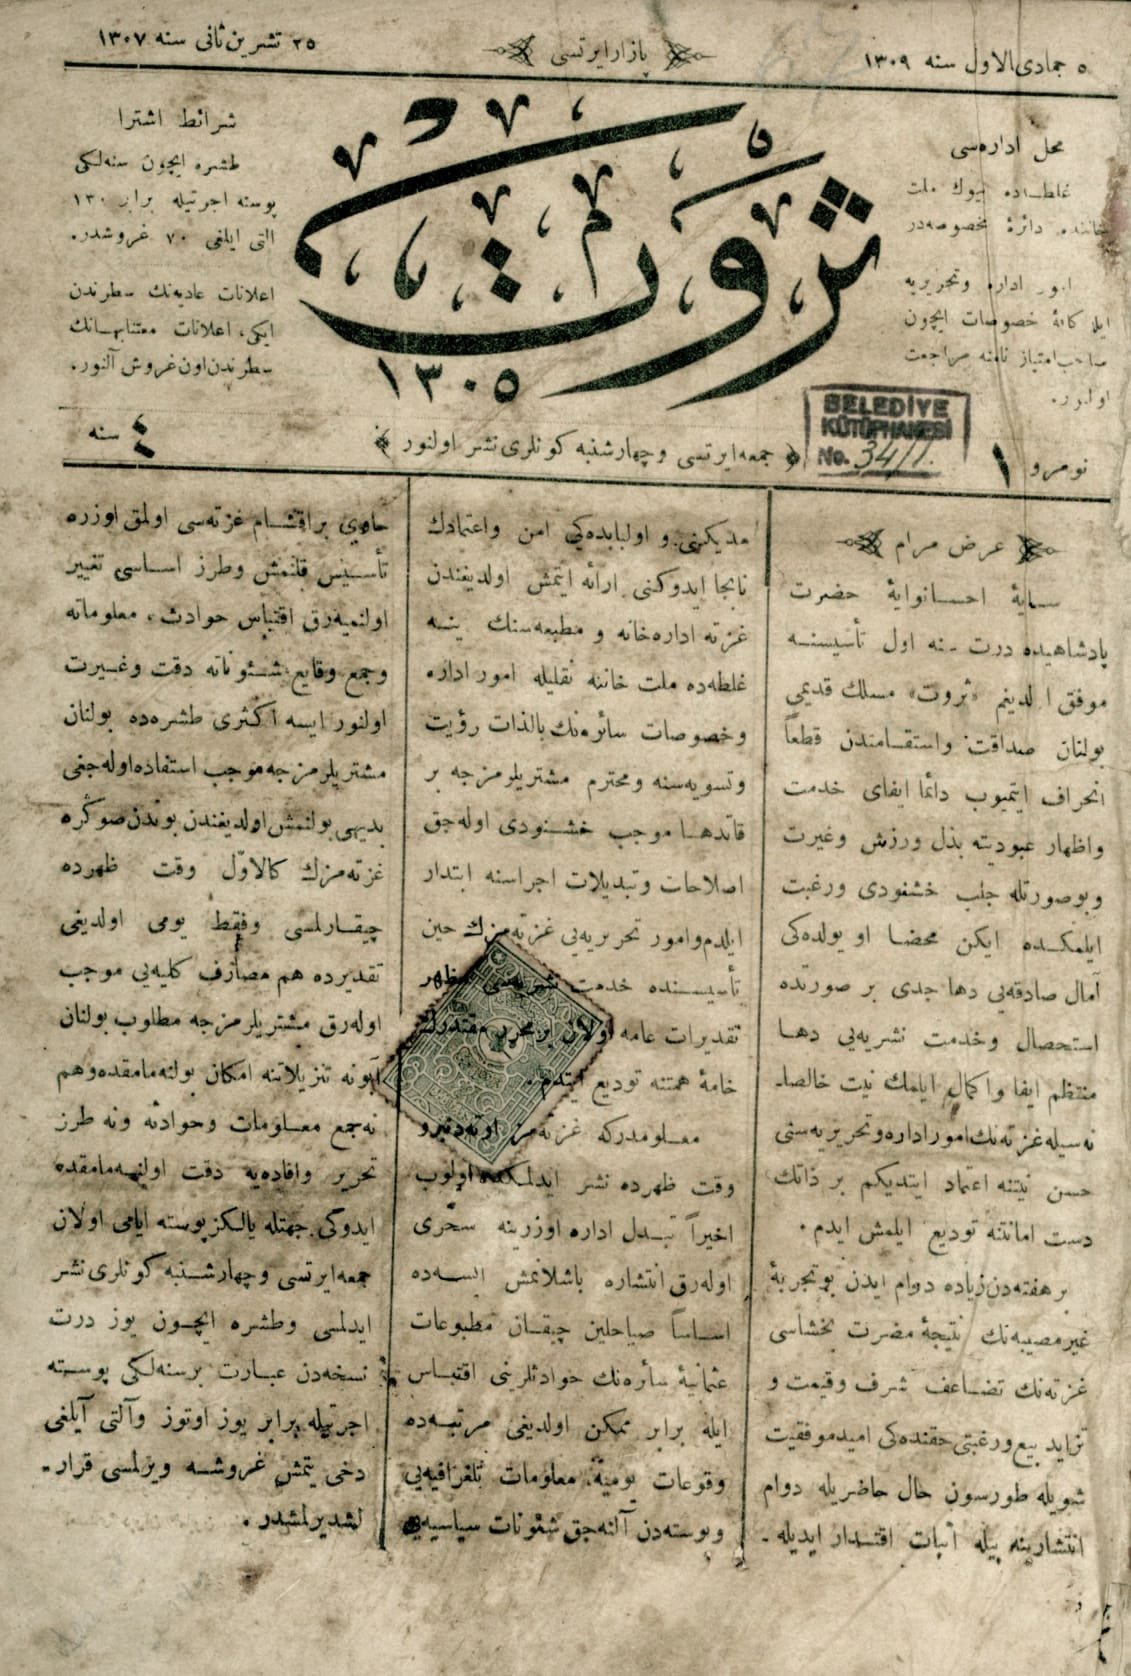 ٥ جمادی الاول سنه ١٣٠٩
پازار ایرتسی
٢٥ تشرین ثانی سنه ١٣٠٧
محل اداره‌سی
غلطـه‌ده بیوك ملت
خاننده دائرۀ مخصوصه‌در
امور اداره وتحریریه
ایله کافۀ خصوصات ایچون
صاحب امتیاز نامنه مراجعت
اولنور.
ثروت
١٣٠٥
شرائط اشترا
طشره ایچون سنه‌لکی
پوسته اجرتیله برابر ١٣٠
التی ایلغی ٧٠ غروشدر.
اعلانات عادیه‌نك سطرندن
ایکی، اعلانات معتنابهـانك
سطرندن اون غروش آلنور.
BELEDİYE
KÜTÜPHANESİ
No. 34/1.
نومرو ١
جمعه‌ایرتسی وچهارشنبه کونلری نشر اولنور
٤ سنه
عرض مرام
سـایۀ احسـانوایۀ حضرت
پادشاهیده درت سنه اول تأسیسنـه
موفق اولدیغم «ثروت» مسلك قدیمی
بولنان صداقت واستقـامتدن قطعاً
انحراف ایتمیوب دائما ایفای خدمت
واظهار عبودیته بذل ورزش وغیرت
وبوصورتله جلب خشنودی ورغبت
ایلمکـده ایکن محضـا او یولده‌کی
آمال صادقه‌یی دها جدی بر صورتده
استحصال وخدمت نشریه‌یی دهـا
منتظم ایفا واکمال ایلمك نیت خالصا-
نه‌سیله غزته‌نك امور اداره وتحریریه‌سنی
حسن نیتنه اعتماد ایتدیکم بر ذاتك
دست امانتنه تودیع ایلمش ایدم.
بر هفته‌دن زیاده دوام ایدن بو تجربۀ
غیر مصیبه‌نك نتیجۀ مضرت بخشاسی
غزته‌نك تضـاعف شرف وقیمت و
تزاید بیع ورغبتی حقنده‌کی امید موفقیت
شویله طورسون حال حاضریله دوام
انتشارینه بیله اثبات اقتـدار ایدیله-
مدیکنی و اولبابده‌کی امن واعتمادك
نابجا ایدوکنی ارائه ایتمش اولدیغندن
غزته اداره‌خانه و مطبعه‌سنك ینـه
غلطه‌ده ملت خاننه نقلیله امور اداره
وخصوصات سائره‌نك بالذات رؤیت
وتسویه‌سنه ومحترم مشتریلرمزجه بر
قاتدهـا موجب خشـنودی اوله‌جق
اصلاحات وتبدیلات اجراسنه ابتدار
ایلدم وامور تحریریه‌یی غزته‌مزك حین
تأسیسـنده خدمت نشریه‌سی مظهر
تقدیرات عامه اولان بر محرر مقتدرك
خامۀ همتنه تودیع ایتدم.
معـلومدرکه غزته‌مز اوته‌دنبرو
وقت ظهرده نشر ایدلمکده اولوب
اخیراً تبـدل اداره اوزرینه سحری
اوله‌رق انتشاره باشلانمش ایسـه‌ده
اسـاساً صباحلین چیقـان مطبوعات
عثمانیۀ سائره‌نك حوادثلرینی اقتبـاس
ایله برابر ممکن اولدیغی مرتبـه‌ده
وقوعات یومیه، معلومات تلغرافیه‌یی
وپوسته‌دن آلنه‌جق شئونات سیاسیه‌یی
حاوی بر اقشـام غزته‌سی اولمق اوزره
تأسـیس قلنمش وطرز اسـاسی تغییر
اولنمیه‌رق اقتباس حوادث، معلوماته
وجمع وقایع شـئوناته دقت وغـیرت
اولنور ایسه اکثری طشره‌ده بولنان
مشتریلرمزجه موجب استفاده اوله‌جغی
بدیهی بولنمش اولدیغندن بوندن صوکره
غزته‌مزك کالاوّل وقت ظهرده
چیقـارلمسی وفقط یومی اولدیغی
تقدیرده هم مصارف کلیه‌یی موجب
اوله‌رق مشتریلرمزجه مطلوب بولنان
آبونه تنزیلاتنه امکان بولنه‌مامقده وهم
نه جمع معـلومات وحوادثه ونه طرز
تحریر وافاده‌یه دقت اولنـه‌مامقده
ایدوکی جهتله یالکز پوسته ایامی اولان
جمعه‌ایرتسی وچهارشـنبه کونلری نشر
ایدلمسی وطشره ایچـون یوز درت
نسخه‌دن عبـارت برسنه‌لکی پوسـته
اجرتیله برابر یوز اوتوز وآلتی آیلغی
دخی یتمش غروشـه ویرلمسی قرار-
لشدیرلمشدر.